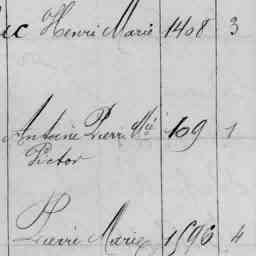 ec Henri Marie 1408 3
Antoine Pierre Me 109 1
Victor
Pierre Marie 1596 4